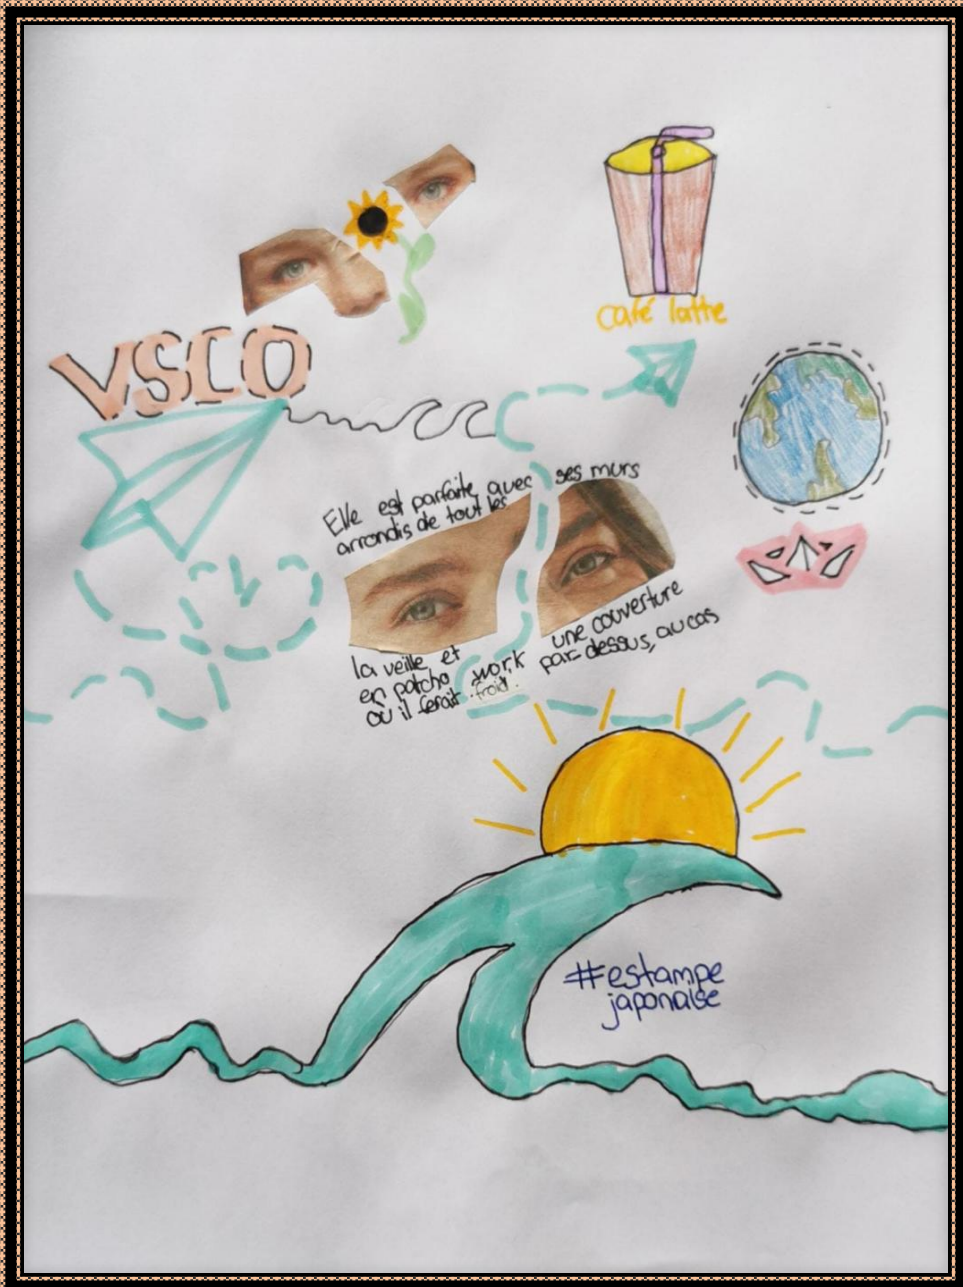 café latte
VSCO
Elle est parfaite avec ses murs
arrondis de tout les
la veille et une couverture
en patcho work par-dessus, au cas
où il ferait froid.
#estampe
japonaise